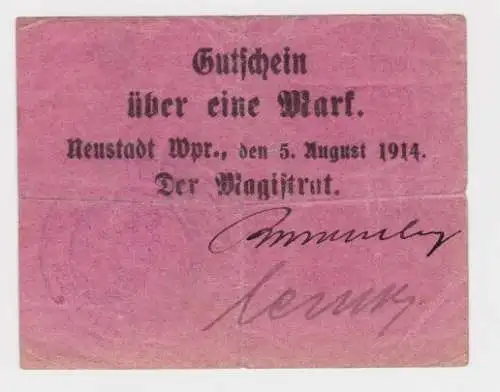 Gutschein
über eine Mark.
Neustadt Wpr., den 5. August 1914.
Der Magistrat.